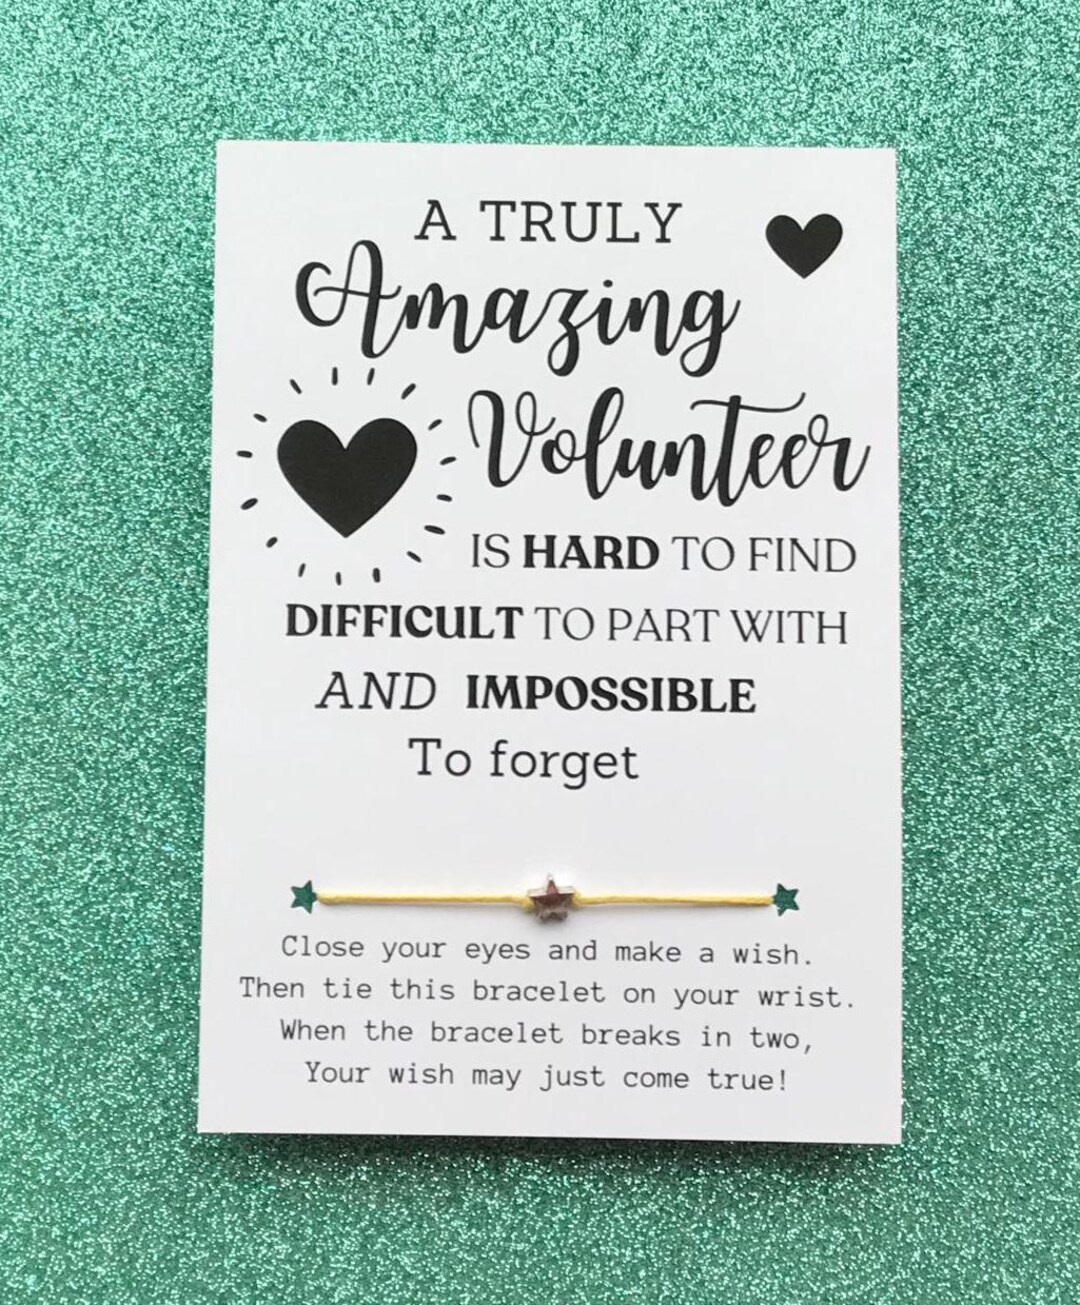 A TRULY
Amazing
Volunteer
IS HARD TO FIND
DIFFICULT TO PART WITH
AND IMPOSSIBLE
To forget
Close your eyes and make a wish.
Then tie this bracelet on your wrist.
When the bracelet breaks in two,
Your wish may just come true!